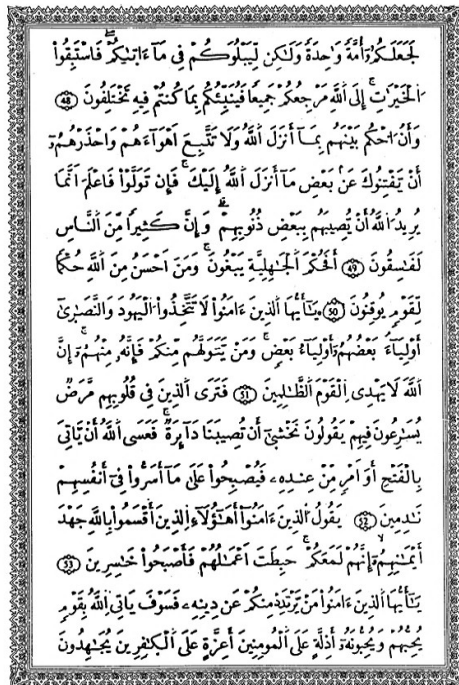 لَجَعَلَكُمُۥٓ أُمَّةً وَٰحِدَةً وَلَٰكِن لِّيَبْلُوَكُمْ فِى مَآ ءَاتَىٰكُمْ فَاسْتَبِقُواْ
الْخَيْرَٰتِ إِلَى اَللَّهِ مَرْجِعُكُمْ جَمِيعًا فَيُنَبِّئُكُم بِمَا كُنتُمْ فِيهِ تَخْتَلِفُونَ 48
وَأَنُ اُحْكُم بَيْنَهُم بِمَآ أَنزَلَ اَللَّهُ وَلَا تَتَّبِعَ اَهْوَآءَهُمْ وَاحْذَرْهُمُۥٓ
أَنْ يَّفْتِنُوكَ عَنۢ بَعْضِ مَآ أَنزَلَ اَللَّهُ إِلَيْكَ فَإِن تَوَلَّوْاْ فَاعْلَمَ اَنَّمَا
يُرِيدُ اُللَّهُ أَنْ يُّصِيبَهُم بِبَعْضِ ذُنُوبِهِمْ وَإِنَّ كَثِيرًا مِّنَ اَلنَّاسِ
لَفَٰسِقُونَ 49 أَفَحُكْمَ اَلْجَٰهِلِيَّةِ يَبْغُونَ وَمَنَ اَحْسَنُ مِنَ اَللَّهِ حُكْمًا
لِّقَوْمٍ يُوقِنُونَ 50 يَٰٓأَيُّهَا اَلَّذِينَ ءَامَنُواْ لَا تَتَّخِذُواْ اُلْيَهُودَ وَالنَّصَٰرَىٰٓ
أَوْلِيَآءَ بَعْضُهُمُۥٓ أَوْلِيَآءُ بَعْضٍ وَمَنْ يَّتَوَلَّهُم مِّنكُمْ فَإِنَّهُۥ مِنْهُمُۥٓ إِنَّ
اَللَّهَ لَا يَهْدِى اِلْقَوْمَ اَلظَّٰلِمِينَ 51 فَتَرَى اَلذِينَ فِى قُلُوبِهِم مَّرَضٌ
يُسَٰرِعُونَ فِيهِمْ يَقُولُونَ نَخْشَىٰٓ أَن تُصِيبَنَا دَآئِرَةٌ فَعَسَى اَللَّهُ أَنْ يَّاتِىَ
بِالْفَتْحِ أَوَ اَمْرٍ مِّنْ عِندِهِۦ فَيُصْبِحُواْ عَلَىٰ مَآ أَسَرُّواْ فِىٓ أَنفُسِهِمْ
نَٰدِمِينَ 52 يَقُولُ اُلذِينَ ءَامَنُوٓاْ أَهَٰٓؤُلَآءِ اِلذِينَ أَقْسَمُواْ بِاللَّهِ جَهْدَ
أَيْمَٰنِهِمُۥٓ إِنَّهُمْ لَمَعَكُمْ حَبِطَتَ اَعْمَٰلُهُمْ فَأَصْبَحُواْ خَٰسِرِينَ 53
يَٰٓأَيُّهَا اَلذِينَ ءَامَنُواْ مَنْ يَّرْتَدِدْ مِنكُمْ عَن دِينِهِۦ فَسَوْفَ يَاتِى اِللَّهُ بِقَوْمٍ
يُحِبُّهُمْ وَيُحِبُّونَهُۥٓ أَذِلَّةٍ عَلَى اَلْمُومِنِينَ أَعِزَّةٍ عَلَى اَلْكَٰفِرِينَ يُجَٰهِدُونَ